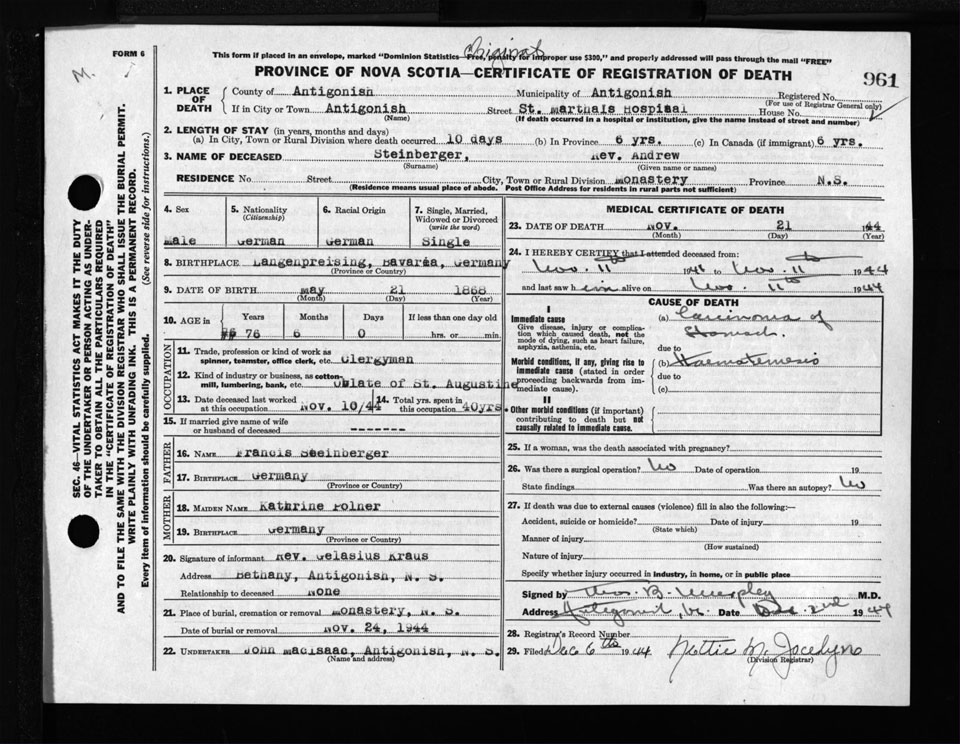 FORM 6
Original
This form if placed in an envelope, marked "Dominion Statistics—Free, penalty for improper use $300," and properly addressed will pass through the mail "FREE"
M.
PROVINCE OF NOVA SCOTIA—CERTIFICATE OF REGISTRATION OF DEATH
961
1. PLACE OF DEATH
County of Antigonish Municipality of Antigonish Registered No.
(For use of Registrar General only)
If in City or Town Antigonish Street St. Marthals Hospiaal House No.
(Name) (If death occurred in a hospital or institution, give the name instead of street and number)
2. LENGTH OF STAY (in years, months and days)
(a) In City, Town or Rural Division where death occurred 10 days (b) In Province 6 yrs. (c) In Canada (if immigrant) 6 yrs.
3. NAME OF DECEASED Steinberger, Rev. Andrew
(Surname) (Given name or names)
RESIDENCE No Street City, Town or Rural Division Monastery Province N.S.
(Residence means usual place of abode. Post Office Address for residents in rural parts not sufficient)
4. Sex
Male
5. Nationality
(Citizenship)
German
6. Racial Origin
German
7. Single, Married, Widowed or Divorced
(write the word)
Single
8. BIRTHPLACE Langenpreising, Bavaria, Germany
(Province or Country)
9. DATE OF BIRTH May 21 1868
(Month) (Day) (Year)
10. AGE in
Years Months Days If less than one day old
76 6 0 hrs. or min.
OCCUPATION
11. Trade, profession or kind of work as
spinner, teamster, office clerk, etc. Clergyman
12. Kind of industry or business, as cotton-
mill, lumbering, bank, etc. Oblate of St. Augustine
13. Date deceased last worked
at this occupation Nov. 10/44
14. Total yrs. spent in
this occupation 40yrs.
15. If married give name of wife
or husband of deceased -------
FATHER
16. NAME Francis Steinberger
17. BIRTHPLACE Germany
(Province or Country)
MOTHER
18. MAIDEN NAME Kathrine Polner
19. BIRTHPLACE Germany
(Province or Country)
20. Signature of informant Rev. Gelasius Kraus
Address Bethany, Antigonish, N. S.
Relationship to deceased None
21. Place of burial, cremation or removal Monastery, N. S.
Date of burial or removal Nov. 24, 1944
22. UNDERTAKER John MacIsaac, Antigonish, N. S.
(Name and address)
MEDICAL CERTIFICATE OF DEATH
23. DATE OF DEATH Nov. 21 44
(Month) (Day) (Year)
24. I HEREBY CERTIFY that I attended deceased from:
Nov. 11th 1944 to Nov. 11th 1944
and last saw him alive on Nov. 11th 1944
CAUSE OF DEATH
I
Immediate cause
Give disease, injury or complication which caused death, not the mode of dying, such as heart failure, asphyxia, asthenia, etc.
(a) Carcinoma of
Stomach.
due to
Morbid conditions, if any, giving rise to immediate cause (stated in order proceeding backwards from immediate cause).
(b) Haematemesis
due to
(c)
II
Other morbid conditions (if important) contributing to death but not causally related to immediate cause.
25. If a woman, was the death associated with pregnancy?
26. Was there a surgical operation? No Date of operation 19
State findings Was there an autopsy? No
27. If death was due to external causes (violence) fill in also the following:—
Accident, suicide or homicide? Date of injury 19
(State which)
Manner of injury
(How sustained)
Nature of injury
Specify whether injury occurred in industry, in home, or in public place
Signed by Thos. B. Murphy M.D.
Address Antigonish, N.S. Date Dec. 2nd 1944
28. Registrar's Record Number
29. Filed Dec 6th 1944 Nettie M. Jocelyn
(Division Registrar)
SEC. 46—VITAL STATISTICS ACT MAKES IT THE DUTY
OF THE UNDERTAKER OR PERSON ACTING AS UNDER-
TAKER TO OBTAIN ALL THE PARTICULARS REQUIRED
IN THE "CERTIFICATE OF REGISTRATION OF DEATH"
AND TO FILE THE SAME WITH THE DIVISION REGISTRAR WHO SHALL ISSUE THE BURIAL PERMIT.
WRITE PLAINLY WITH UNFADING INK. THIS IS A PERMANENT RECORD.
Every item of information should be carefully supplied. (See reverse side for instructions.)